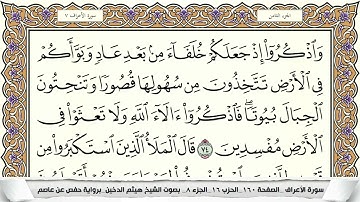 الجزء الثامن
سورة الأعراف ٧
وَٱذۡكُرُوٓاْ إِذۡ جَعَلَكُمۡ خُلَفَآءَ مِنۢ بَعۡدِ عَادٖ وَبَوَّأَكُمۡ
فِي ٱلۡأَرۡضِ تَتَّخِذُونَ مِن سُهُولِهَا قُصُورٗا وَتَنۡحِتُونَ
ٱلۡجِبَالَ بُيُوتٗاۖ فَٱذۡكُرُوٓاْ ءَالَآءَ ٱللَّهِ وَلَا تَعۡثَوۡاْ فِي
ٱلۡأَرۡضِ مُفۡسِدِينَ ٧٤ قَالَ ٱلۡمَلَأُ ٱلَّذِينَ ٱسۡتَكۡبَرُواْ مِن
سورة الأعراف _ الصفحة ١٦٠ _ الحزب ١٦ _ الجزء ٨ _ بصوت الشيخ هيثم الدخين _ برواية حفص عن عاصم